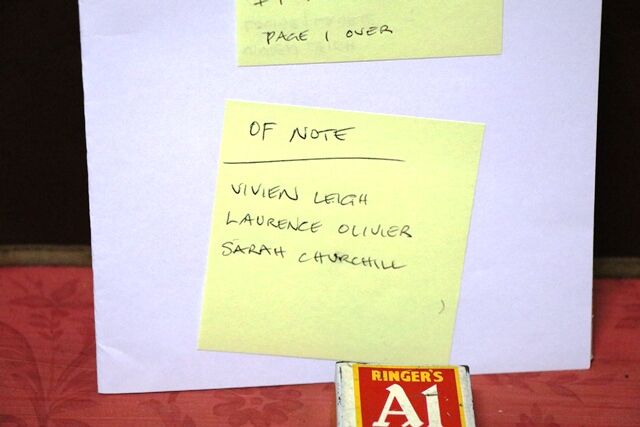 PAGE 1 OVER
OF NOTE
VIVIEN LEIGH
LAURENCE OLIVIER
SARAH CHURCHILL
RINGER'S
A1